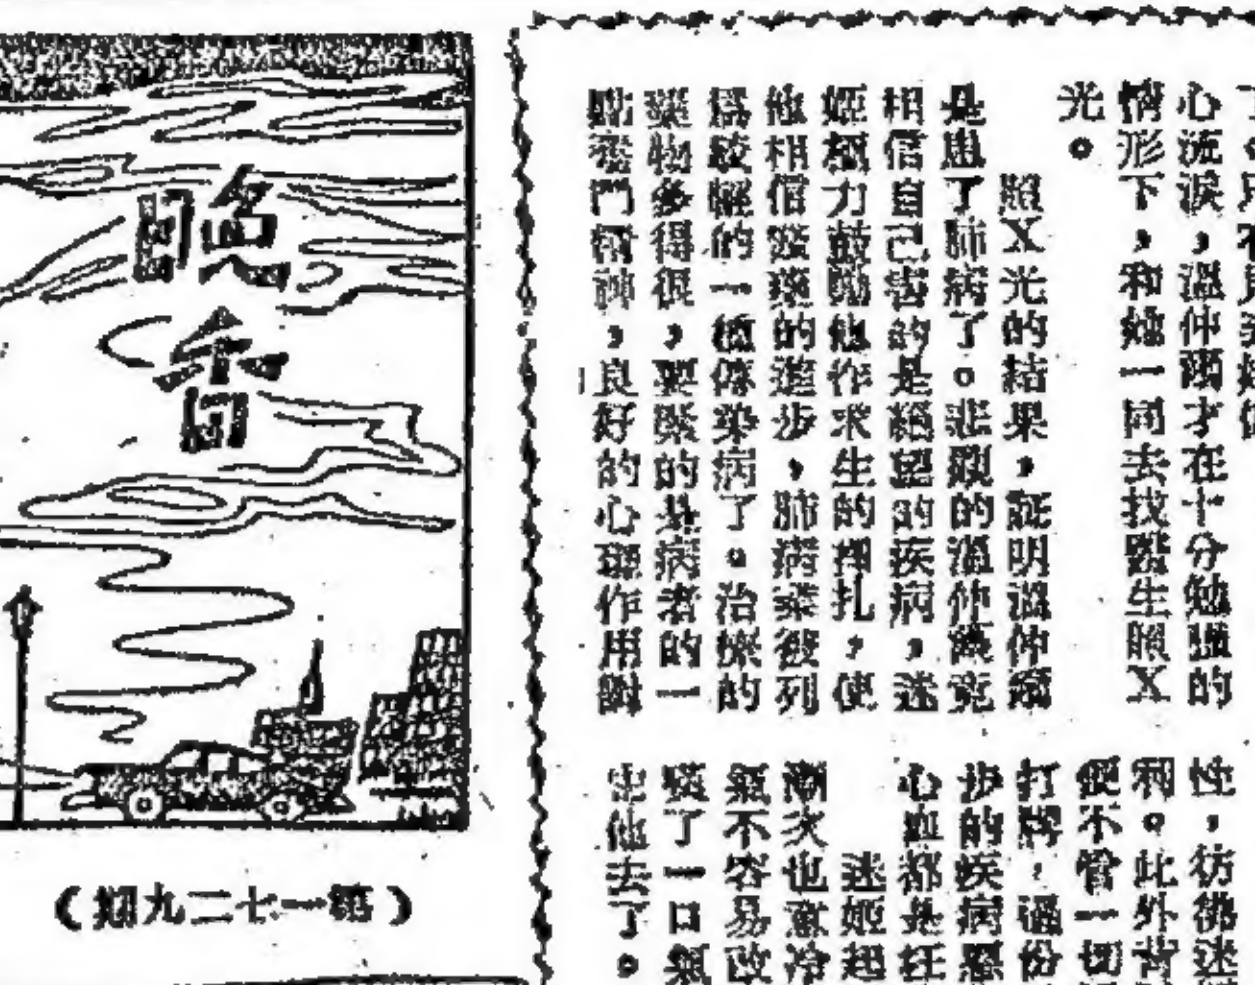 心流淚,溫仲才在十分勉强的
情形下,和她一同去找醫生照X
光。
照X光的結果,証明溫仲
是患了肺病了。悲觀的溫仲竟
相信自己害的是絕望的疾病,迷
姬極力鼓勵他作求生的掙扎,使
他相信醫藥的進步,肺病業被列
爲較輕的一種傳染病了。治療的
藥物多得很,要緊的是病者的一
點奮鬥精神,良好的心理作用對
性,彷彿迷
利。此外背
便不管一切
打牌,過份
步的疾病
心血都是枉
迷姬起
漸次也意冷
氣不容易改
嘆了一口氣
出他去了。
晚香
(第一七二九期)